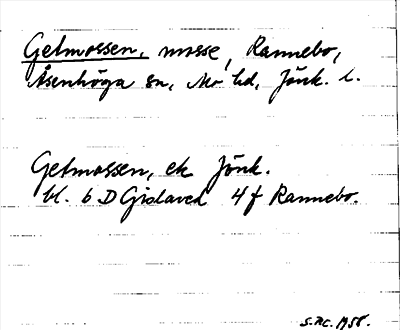 Getmossen, mosse, Rannebo,
Åsenhöga sn, Mo hd, Jönk. l.
Getmossen, ek Jönk.
bl. 6 D Gislaved 4 f Rannebo.
1958.